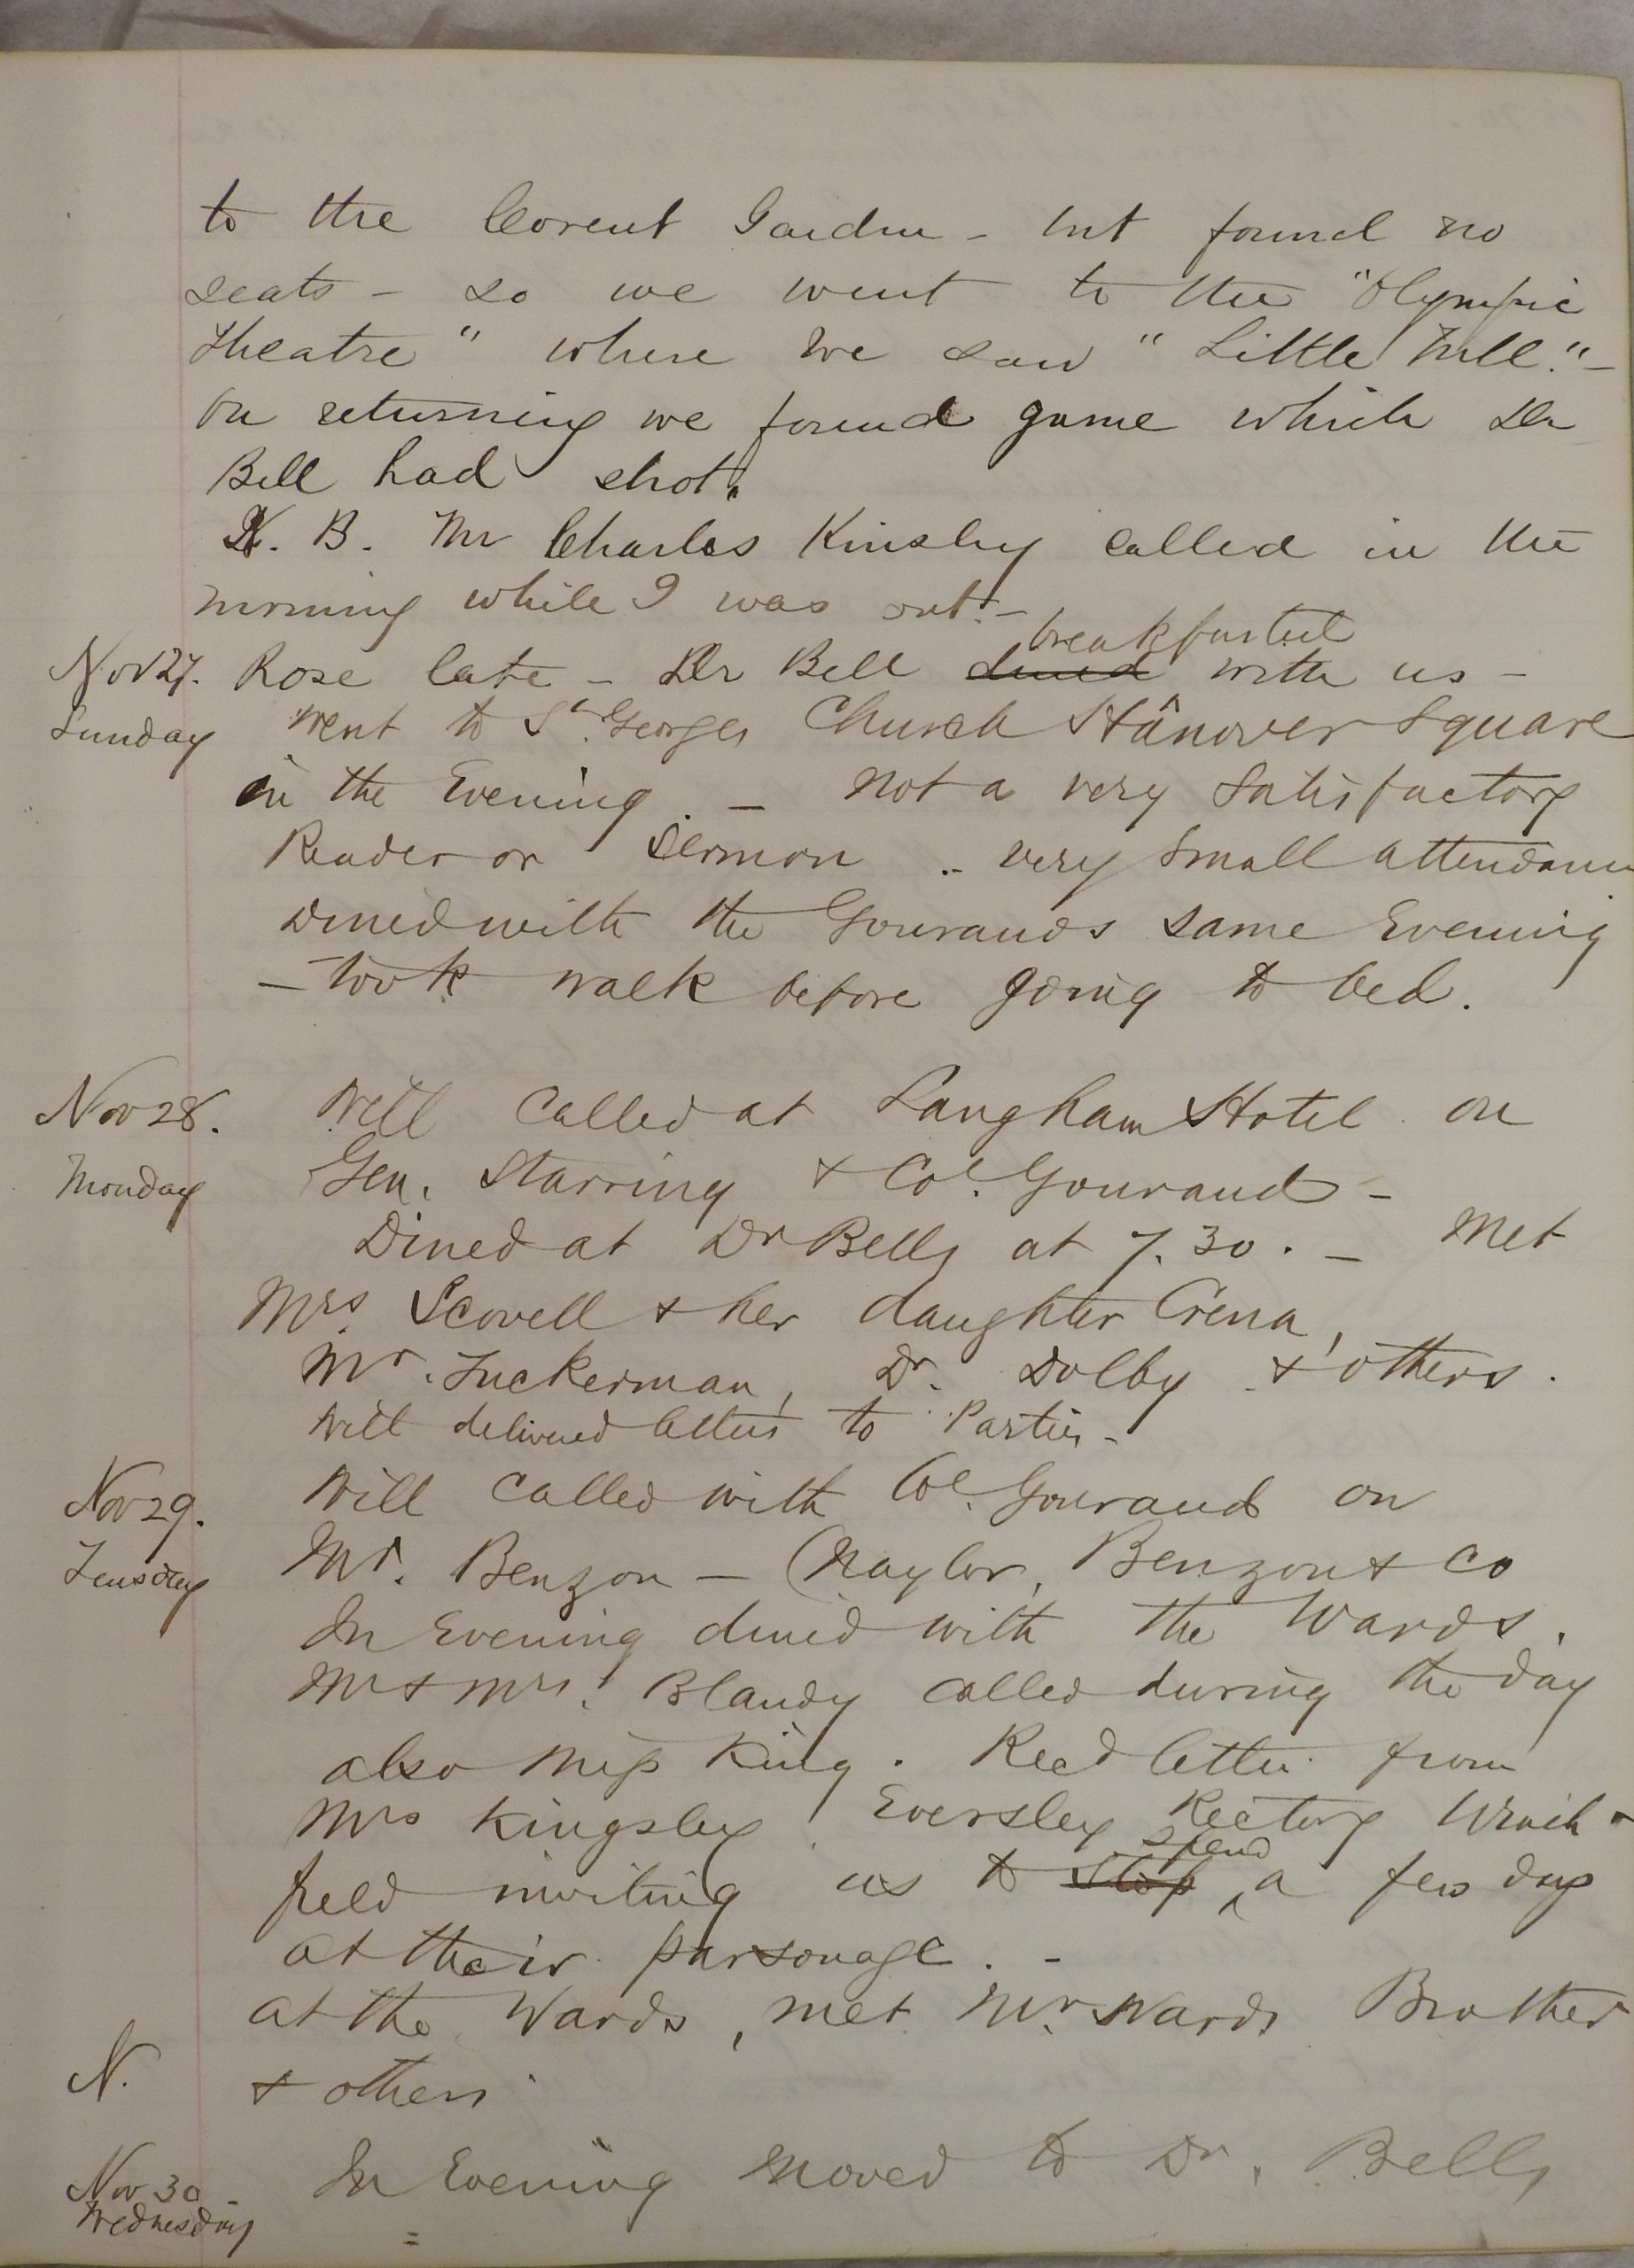 to the Covent Garden - but found no
seats - so we went to the "Olympic
Theatre" where we saw "Little Nell." -
On returning we found game which Dr
Bell had shot.
N. B. Mr Charles Kinsley called in the
morning while I was out. -
breakfasted
Nov 27. Rose late - Dr Bell dined with us -
Sunday Went to St. Georges Church Hanover Square
in the Evening - not a very Satisfactory
Reader or Sermon .. very small attendance
Dined with the Gourauds same Evening
- took walk before going to bed.
Nov 28. Will Called at Langham Hotel on
Monday Gen. Starring & Col. Gouraud -
Dined at Dr Bells at 7.30. - Met
Mrs. Scovell & her daughter Crena,
Mr. Tuckerman, Dr. Dolby & others.
Will delivered letters to Parties -
Nov 29. Will Called with Col. Gouraud on
Tuesday Mr. Benzon - (Naylor, Benzon & Co
In Evening dined with the Wards.
Mr & Mrs. Blandy called during the day
also Miss King. Recd letter from
Mrs Kingsley Eversley Rectory Winch-
spend
field inviting us to stop a few days
at their parsonage. -
At the Wards, met Mr. Wards Brother
N. & others
Nov 30 In Evening moved to Dr. Bells
Wednesday =